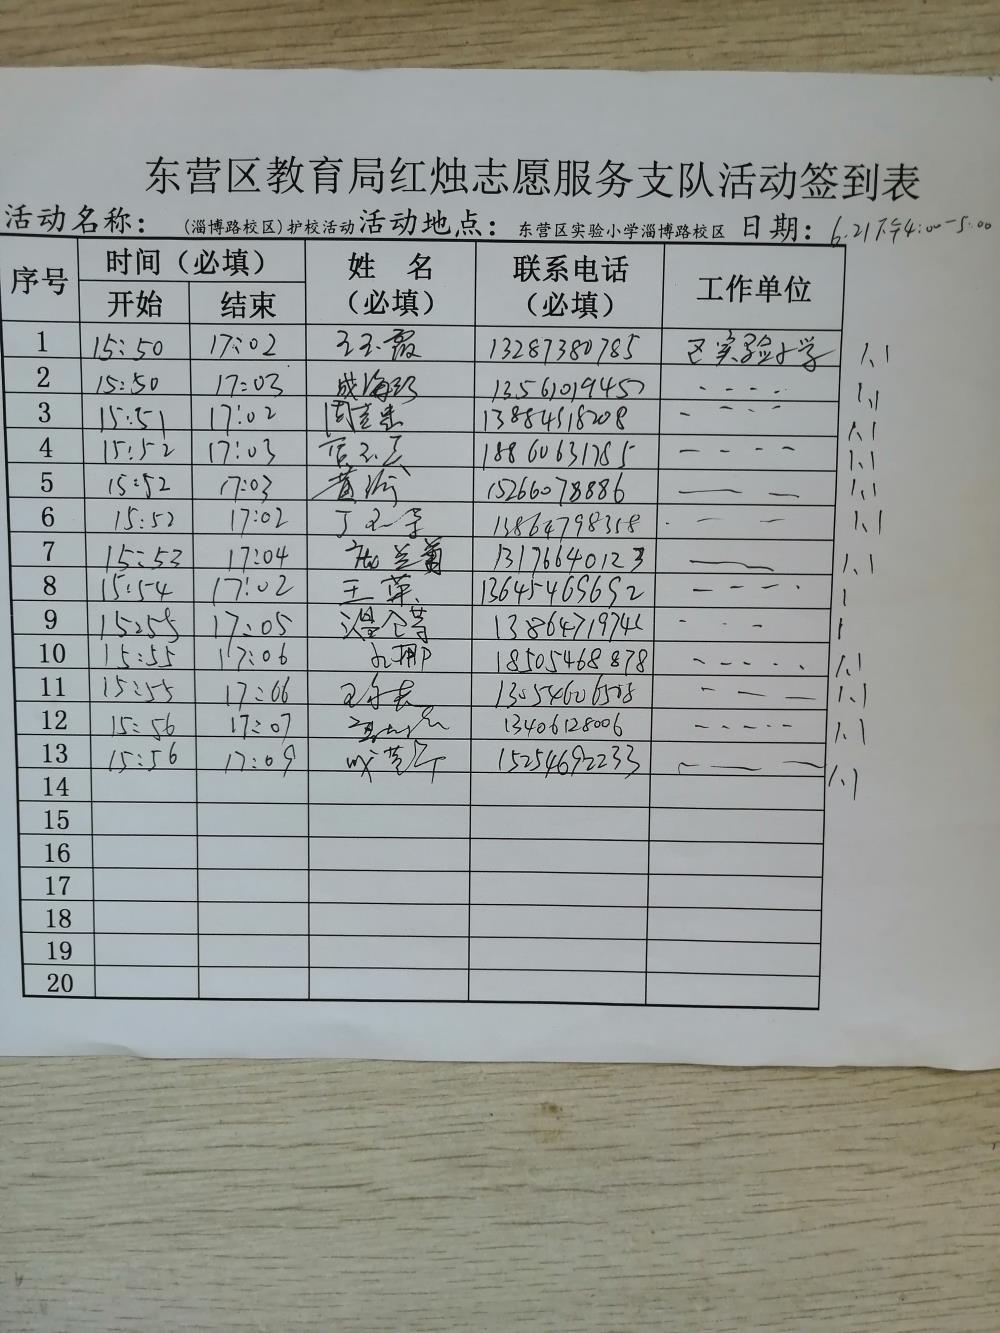 东营区教育局红烛志愿服务支队活动签到表
活动名称： (淄博路校区)护校活动 活动地点： 东营区实验小学淄博路校区 日期： 6.21下午4:00-5:00
序号 时间（必填） 姓 名（必填） 联系电话（必填） 工作单位
开始 结束
1 15:50 17:02 王玉霞 13287380785 区实验小学 1.1
2 15:50 17:03 13561019457 1.1
3 15:51 17:02 13884518208 1.1
4 15:52 17:03 18860631785 1.1
5 15:52 17:03 黄 15266078886 1.1
6 15:52 17:02 丁 13864798358 1.1
7 15:53 17:04 13176640123 1.1
8 15:54 17:02 王苹 13645465652 1
9 15:55 17:05 1
10 15:55 17:06 18505468878 1.1
11 15:55 17:06 13054606508 1.1
12 15:56 17:07 13406128006 1.1
13 15:56 17:09 15254692233 1.1
14
15
16
17
18
19
20